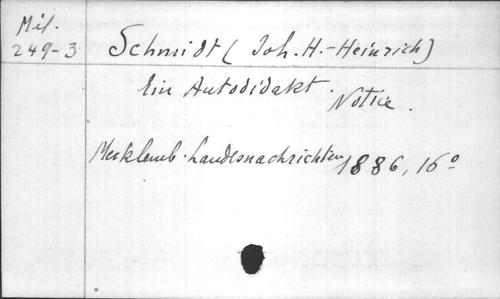 Mil.
249-3
Schmidt (Joh. H.-Heinrich)
Ein Autodidakt.
Notice.
Mecklemb. Landesnachrichten
1886, 16°